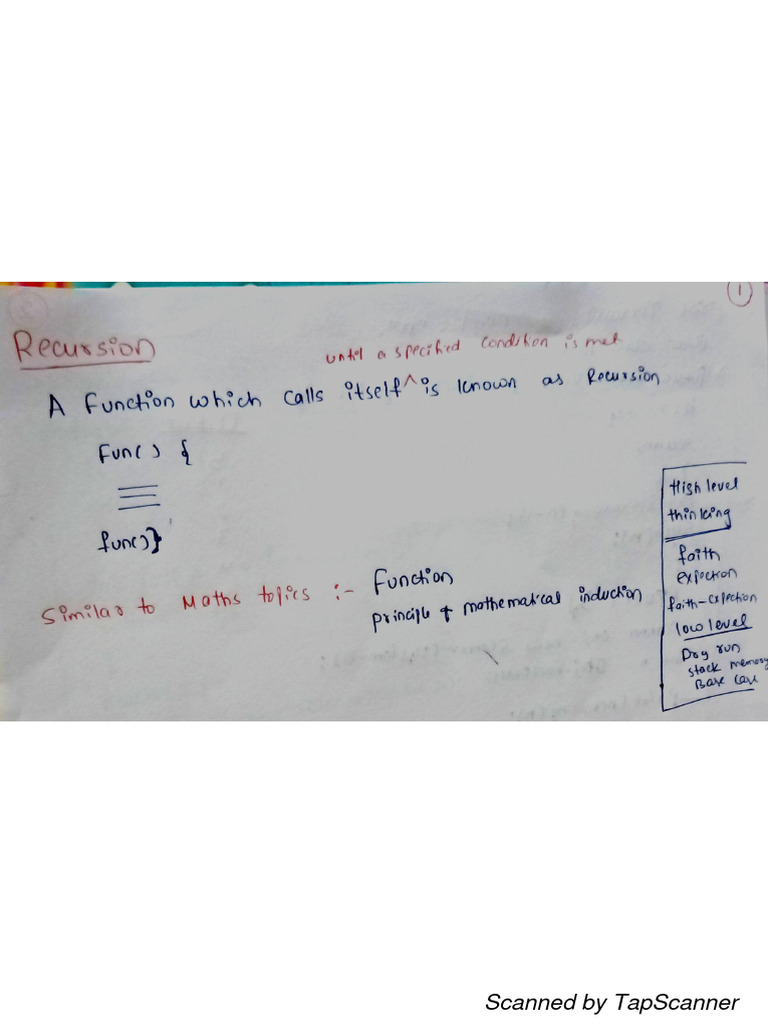 1
Recursion
until a specified condition is met
A Function which calls itself ^ is known as Recursion
Func() {
func()}
Similar to Maths topics :- Function
principle of mathematical induction
High level
thinking
faith
expection
faith-expection
low level
Dry run
stack memory
Base case
Scanned by TapScanner